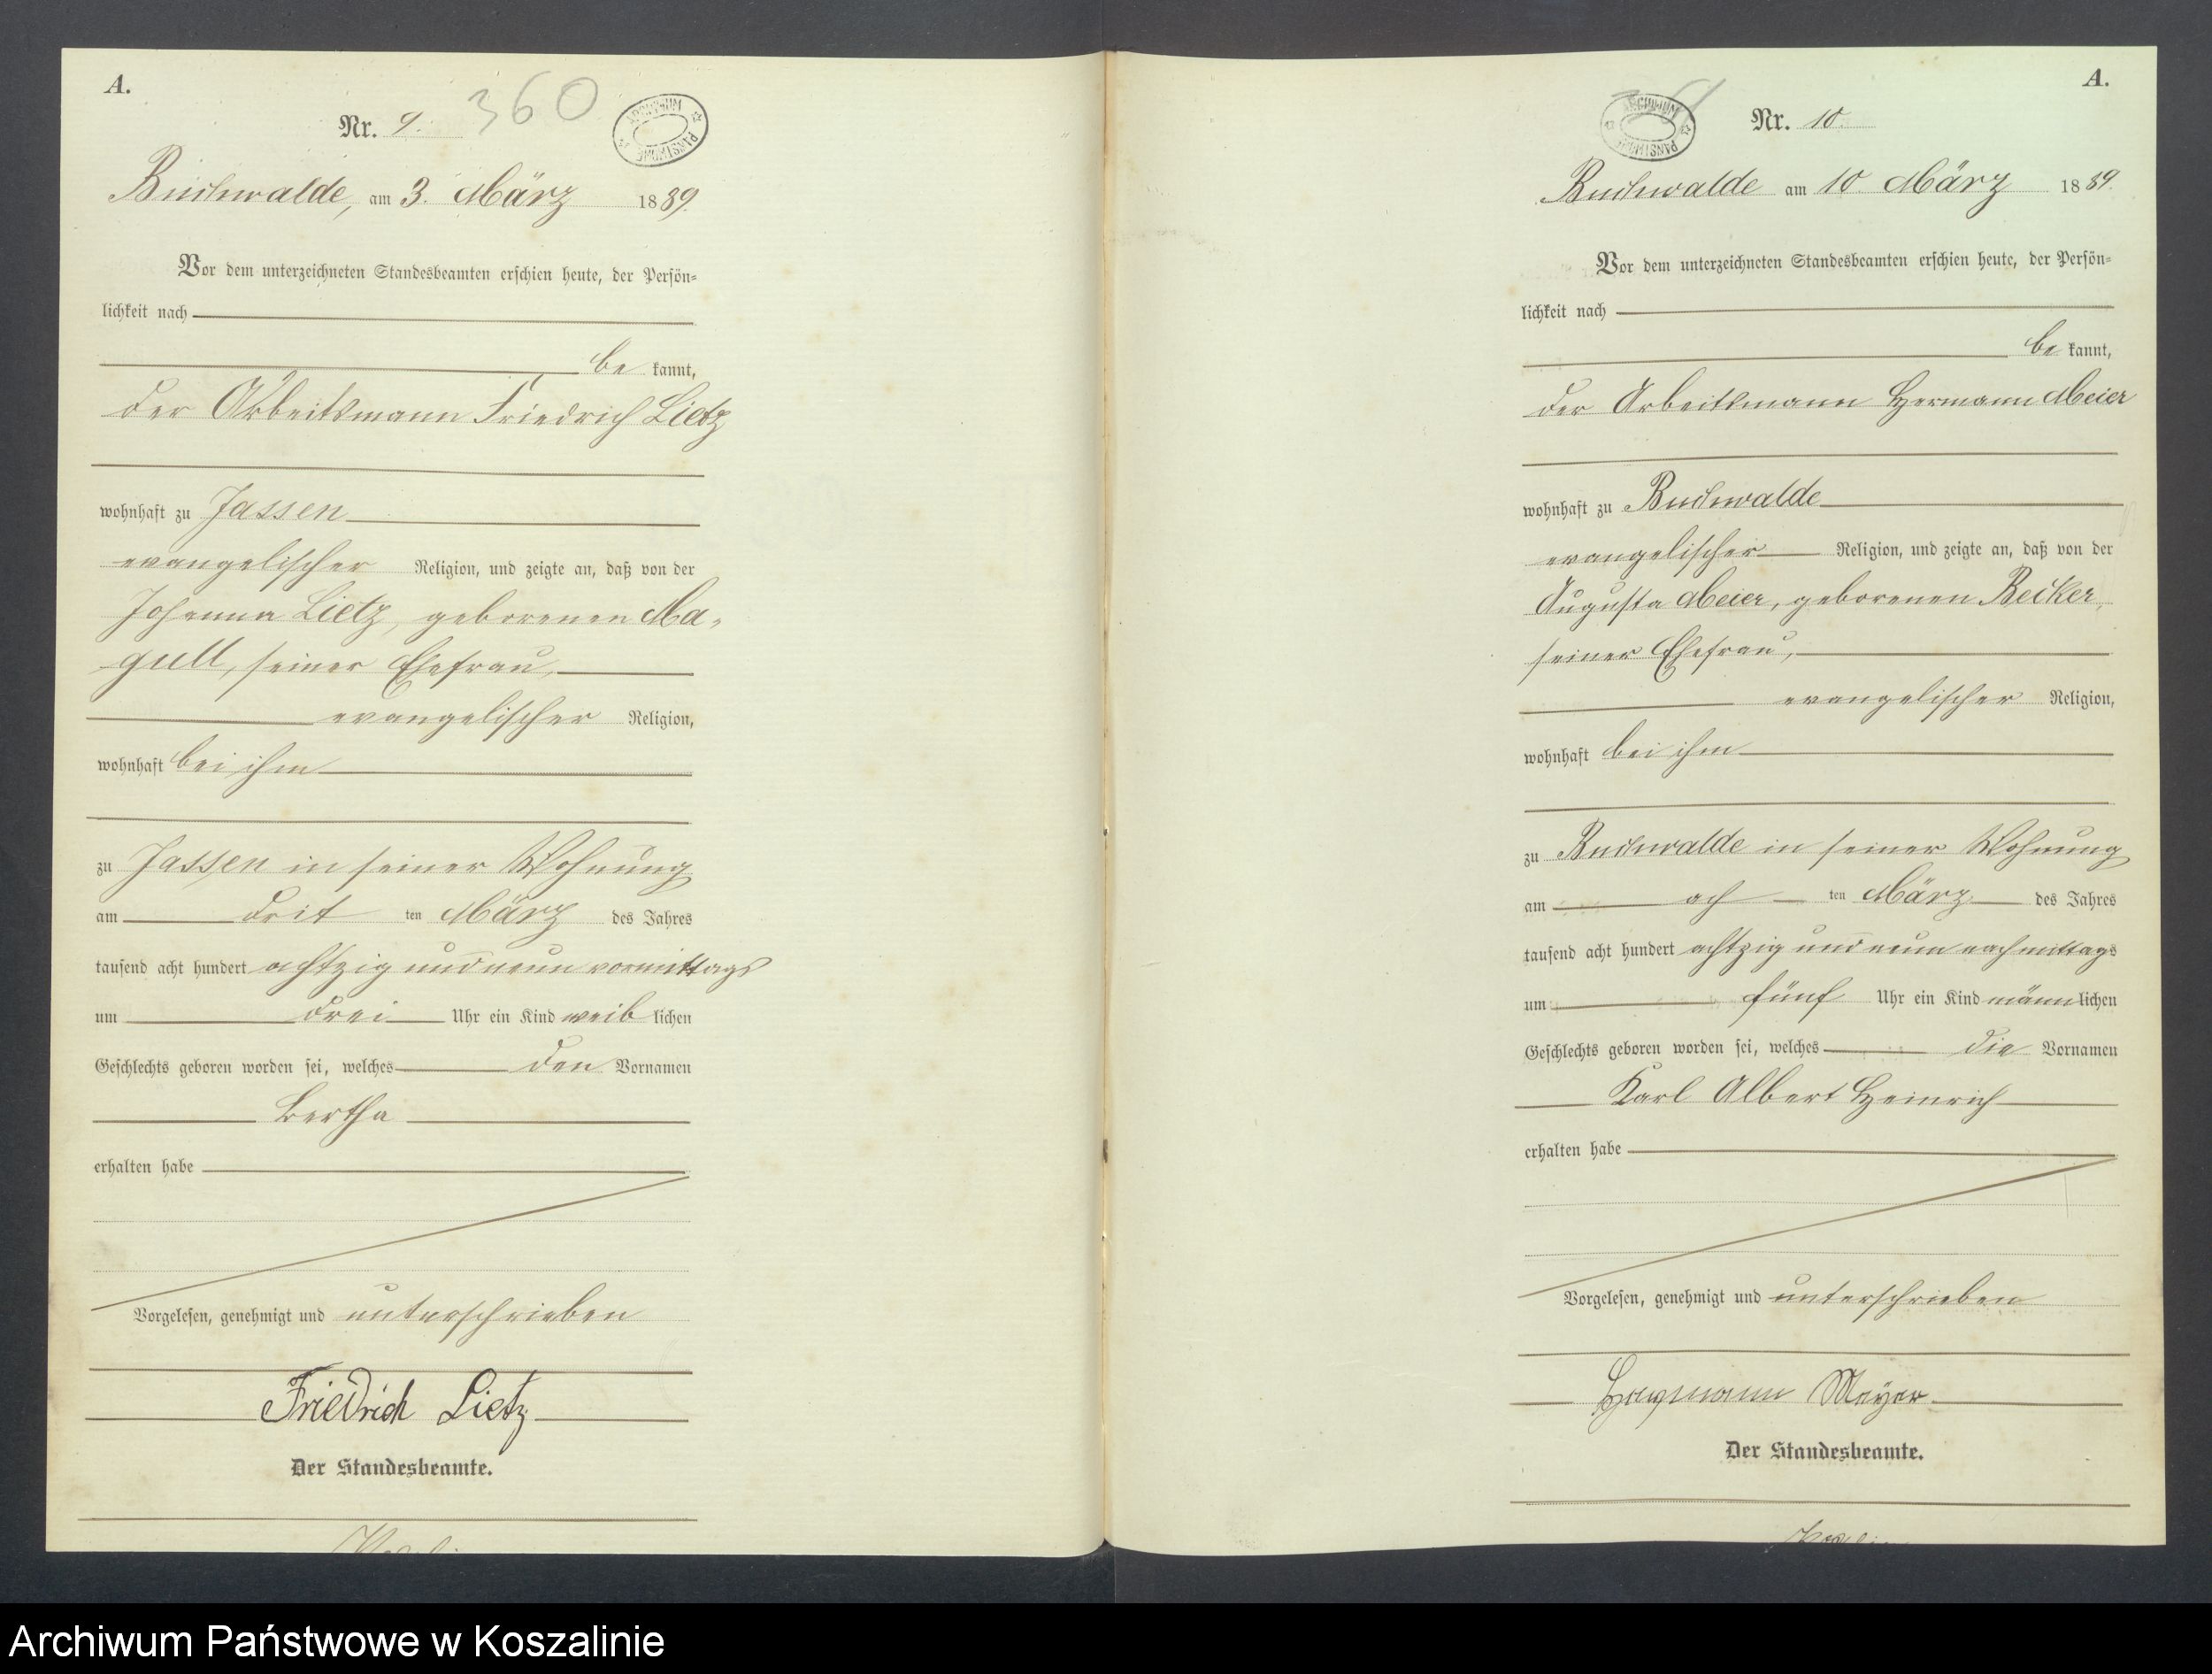 A.
Nr. 9. 360
ARCHIWUM PAŃSTWOWE
Buchwalde, am 3. März 1889.
Vor dem unterzeichneten Standesbeamten erschien heute, der Persön=
lichkeit nach
be kannt,
der Arbeitsmann Friedrich Lietz
wohnhaft zu Jassen
evangelischer Religion, und zeigte an, daß von der
Johanna Lietz, geborenen Ma=
gull, seiner Ehefrau,
evangelischer Religion,
wohnhaft bei ihm
zu Jassen in seiner Wohnung
am drit ten März des Jahres
tausend acht hundert achtzig und neun vormittags
um drei Uhr ein Kind weib lichen
Geschlechts geboren worden sei, welches den Vornamen
Bertha
erhalten habe
Vorgelesen, genehmigt und unterschrieben
Friedrich Lietz
Der Standesbeamte.
A.
Nr. 10.
ARCHIWUM PAŃSTWOWE
Buchwalde am 10 März 1889.
Vor dem unterzeichneten Standesbeamten erschien heute, der Persön=
lichkeit nach
be kannt,
der Arbeitsmann Hermann Meier
wohnhaft zu Buchwalde
evangelischer Religion, und zeigte an, daß von der
Augusta Meier, geborenen Becker,
seiner Ehefrau,
evangelischer Religion,
wohnhaft bei ihm
zu Buchwalde in seiner Wohnung
am ach ten März des Jahres
tausend acht hundert achtzig und neun nachmittags
um fünf Uhr ein Kind männlichen
Geschlechts geboren worden sei, welches die Vornamen
Karl Albert Heinrich
erhalten habe
Vorgelesen, genehmigt und unterschrieben
Hermann Meyer
Der Standesbeamte.
Archiwum Państwowe w Koszalinie